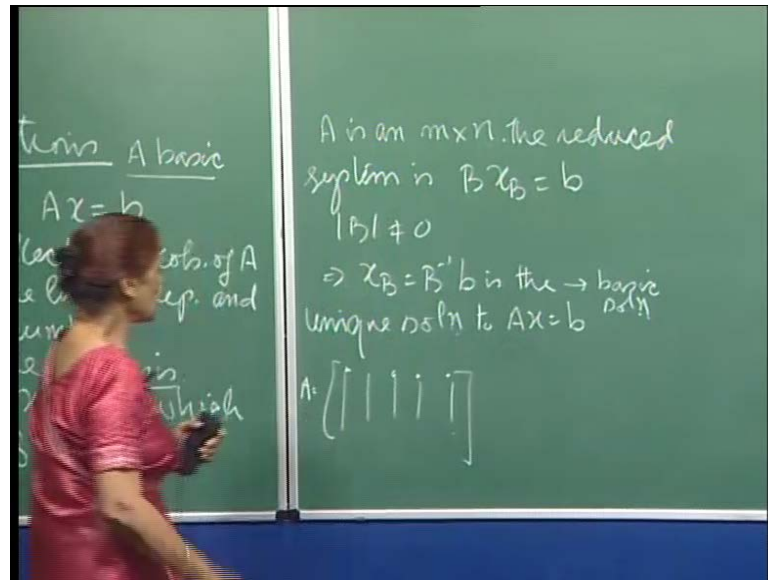 tions A basic
Ax = b
cols. of A
ep. and
which
A is an m×n. the reduced
system is B x_B = b
|B| ≠ 0
⇒ x_B = B⁻¹b is the → basic
soln
unique soln to Ax = b
A =